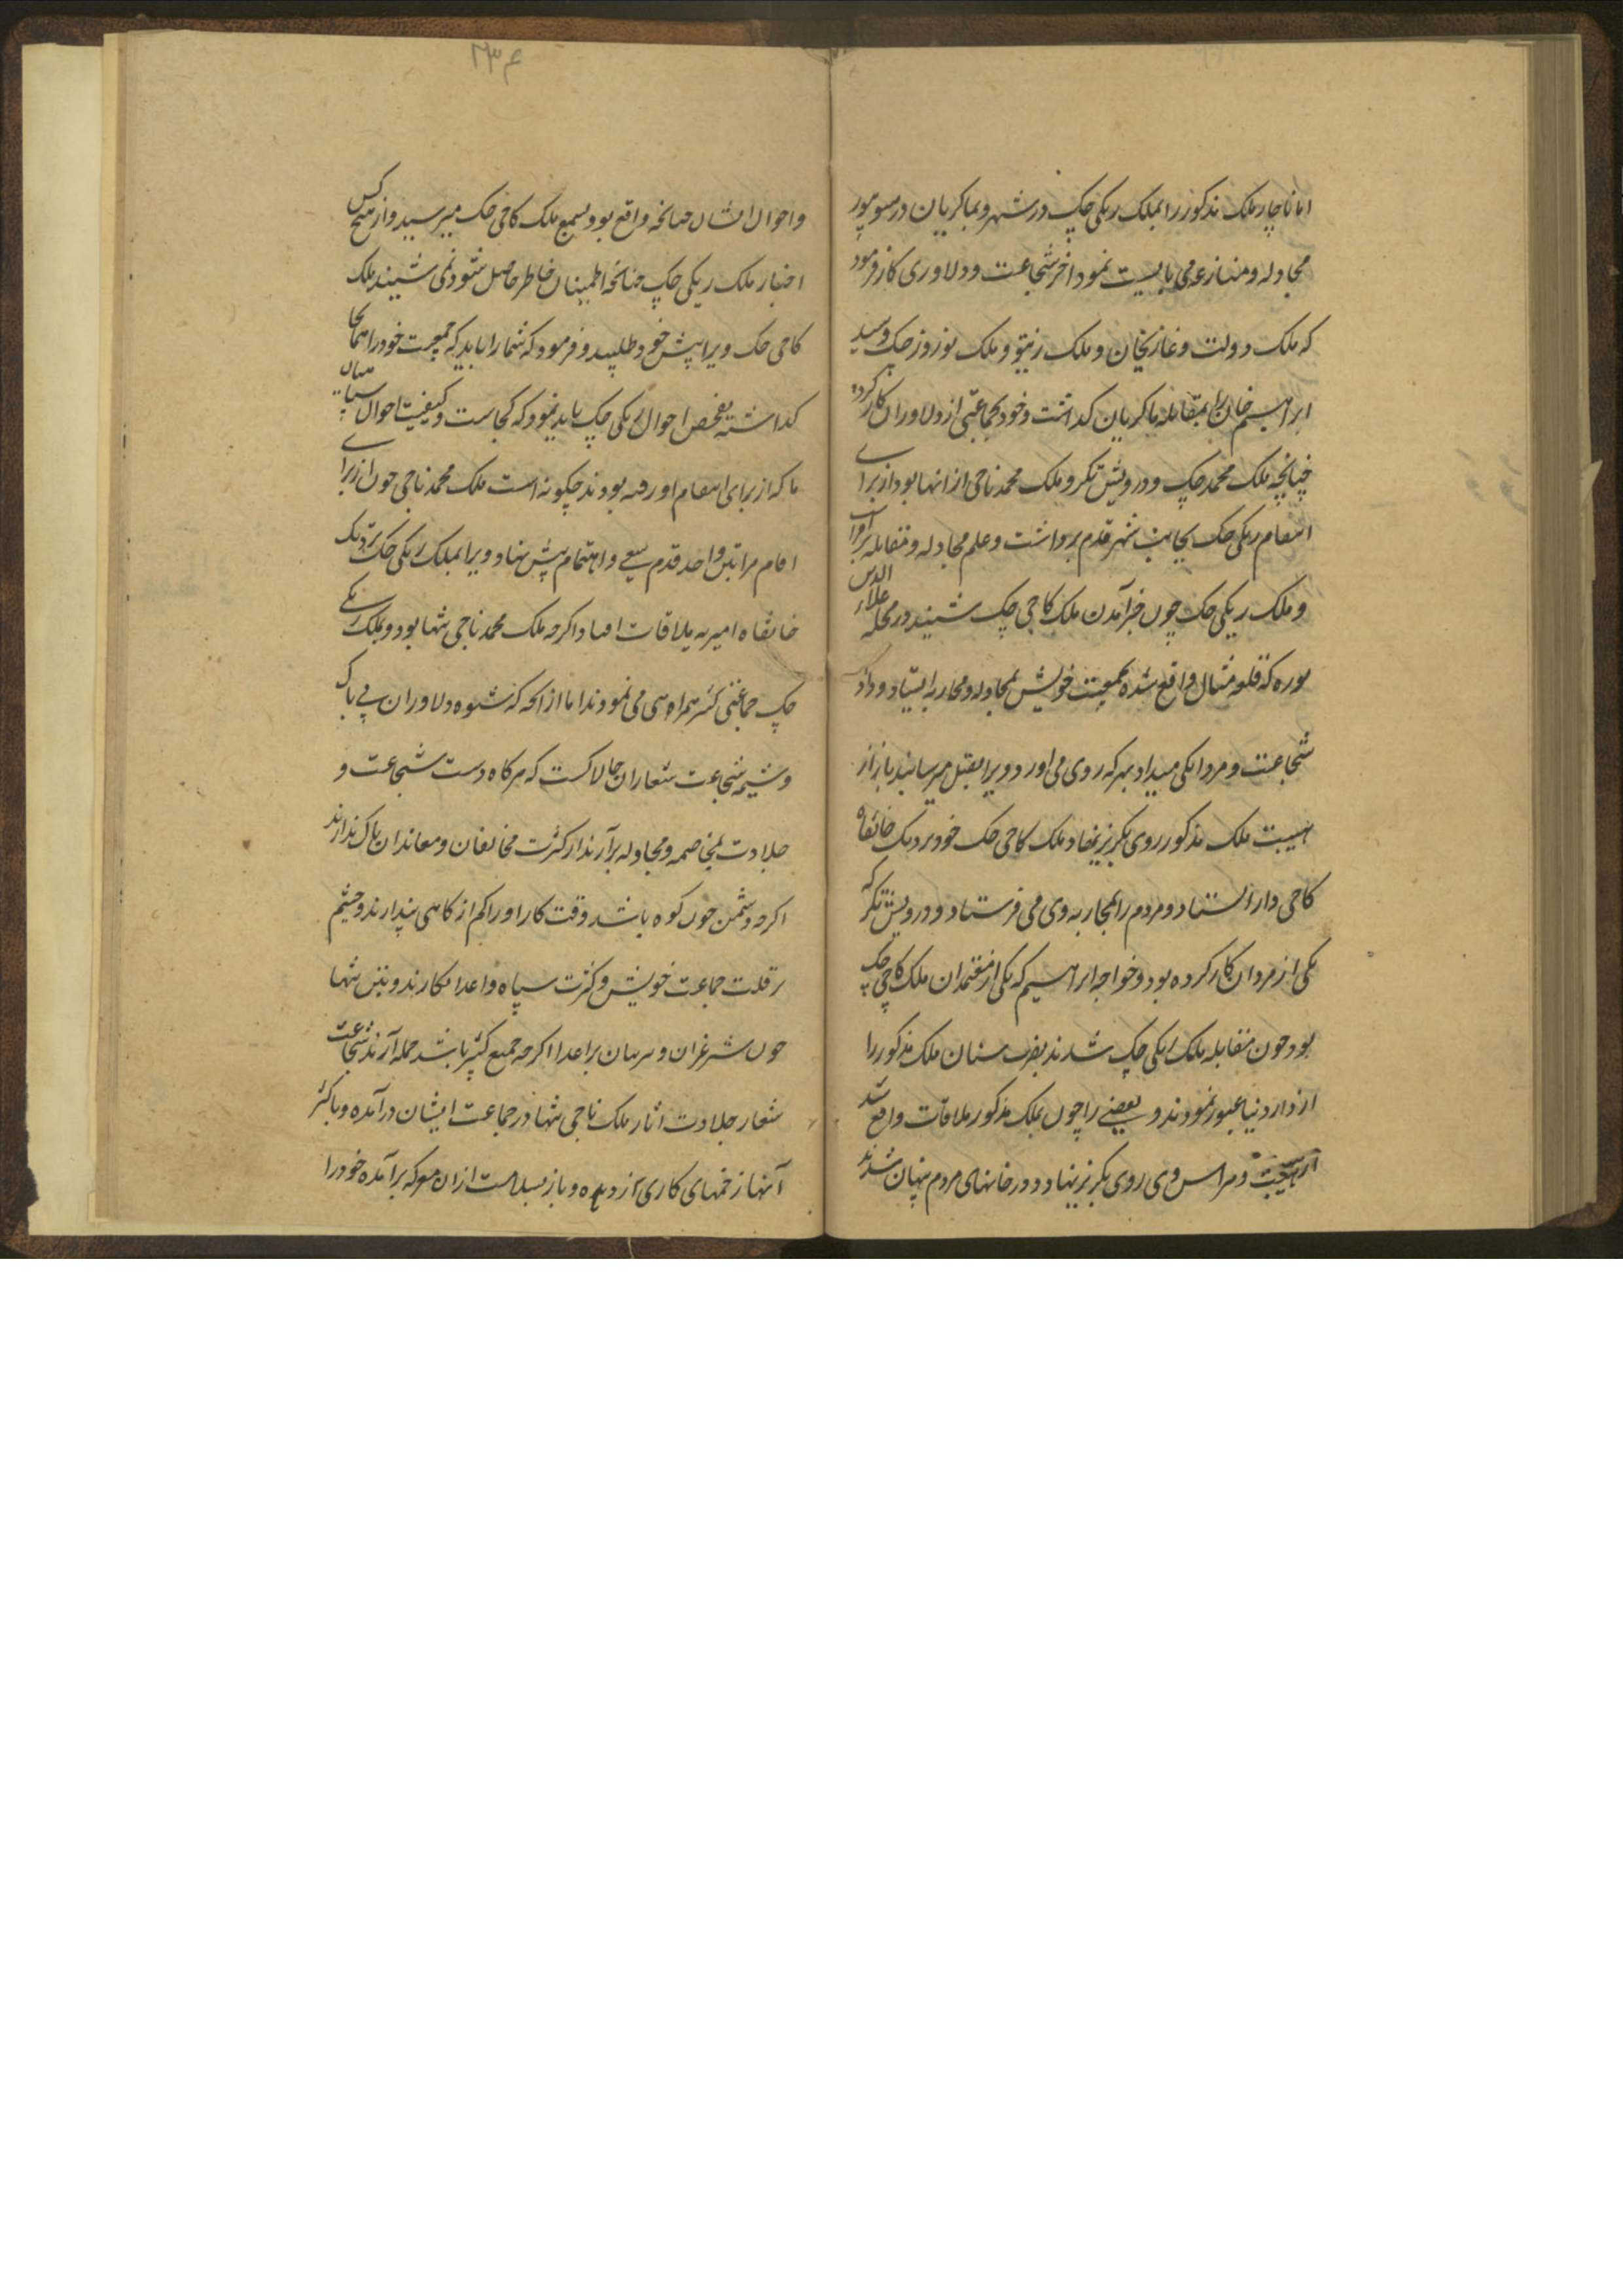 اما ناچار ملک مذکور را بملک ریکی چک در شهر و بماکریان در سوپور
مجادله و منازعه می بایست نمود اخر شجاعت و دلاوری کار فرمود
که ملک دولت و غازیخان و ملک و ملک نوروز چک و سید
ابراهیم خان را بمقابله ماکریان کداشت و خود بجماعتی از دلاوران کار کرده
چنانچه ملک محمد چک و درویش تکر و ملک محمد ناجی از انها بود از برای
انتقام ریکی چک بجانب شهر قدم برداشت و علم مجادله و مقابله
و ملک ریکی چک چون خبر آمدن ملک کاجی چک شنید در محله علاء الدین
پوره که قلعه مثال واقع شده بجمعیت خویش بمجادله و محاربه ایستاد و داد
شجاعت و مردانکی میداد بهر که روی می اورد ویرا بقتل میرسانید باز از
هیبت ملک مذکور روی بکریز نهاد ملک کاجی چک خود نزدیک خانقاه
کاجی دار ایستاد و مردم را بمحاربه وی می فرستاد و درویش تکر که
یکی از مردان کار کرده بود و خواجه ابراهیم که یکی از معتمدان ملک کاجی چک
بود چون مقابله ملک ریکی چک شدند بضرب سنان ملک مذکور را
از دار دنیا عبور نمودند و بعضی را چون بملک مذکور ملاقات واقع شد
از هیبت و هراس وی روی بکریز نهاد و در خانهای مردم پنهان شدند
۲۳۴
و احوال ایشان چنانچه واقع بود بسمع ملک کاجی چک میرسید و از هیچ کس
اخبار ملک ریکی چک چنانچه اطمینان خاطر حاصل شود نمی شنید ملک
کاجی چک ویرا پیش خود طلبید و فرمود که شما را باید که جمعیت خود را همانجا
کداشته تفحص احوال ریکی چک باید نمود که کجاست و کیفیت احوال سپاهیان
ما که از برای انتقام او رفته بودند چکونه است ملک محمد ناجی چون از برای
اقام مراتبی واحد قدم سعی و اهتمام پیش نهاد ویرا بملک ریکی چک نزدیک
خانقاه امیریه ملاقات افتاد اکرچه ملک محمد ناجی تنها بود و بملک ریکی
چک جماعتی کثیر همراهی می نمودند اما از انجا که شیوه دلاوران بی باک
و شیمه شجاعت شعاران چالاکست که هرکاه دست شجاعت و
جلادت بمخاصمه و مجادله برآرند از کثرت مخالفان و معاندان باک ندارند
اکرچه دشمن چون کوه باشد وقت کار او را کم از کاهی پندارند و چشم
بر قلت جماعت خویش و کثرت سپاه اعدا نکمارند و بنفس تنها
چون شیر غران و ببر بیان بر اعدا اکرچه جمیع کثیر باشد حمله آرند شجاعت
شعار جلادت اثار ملک ناجی تنها در جماعت ایشان درآمده و باکثر
آنها زخمهای کاری زده و باز بسلامت ازان معرکه برآمده خود را